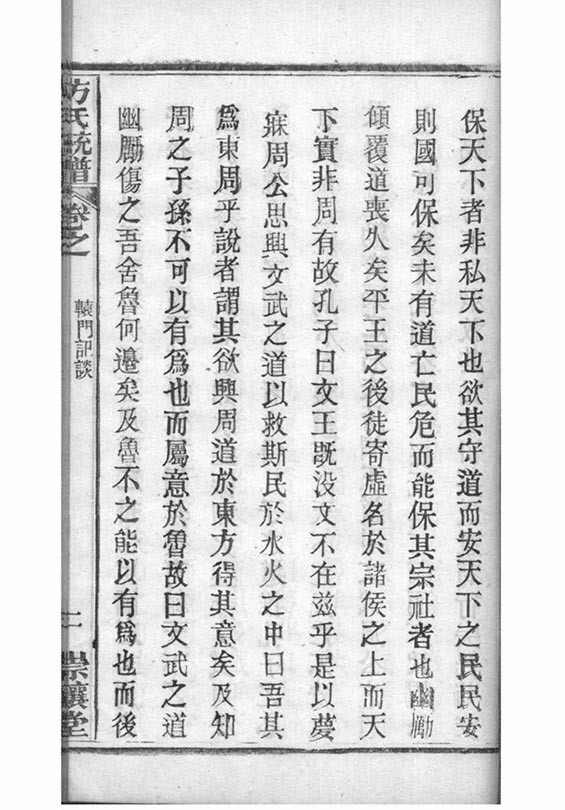 保天下者非私天下也欲其守道而安天下之民民安
則國可保矣未有道亡民危而能保其宗社者也幽勵
傾覆道喪久矣平王之後徒寄虛名於諸侯之上而天
下實非周有故孔子曰文王既没文不在兹乎是以夢
寐周公思興文武之道以救斯民於水火之中曰吾其
爲東周乎說者謂其欲興周道於東方得其意矣及知
周之子孫不可以有爲也而屬意於魯故曰文武之道
幽勵傷之吾舍魯何邉矣及魯不之能以有爲也而後
方氏統譜
卷之
轅門記談
二
崇讓堂